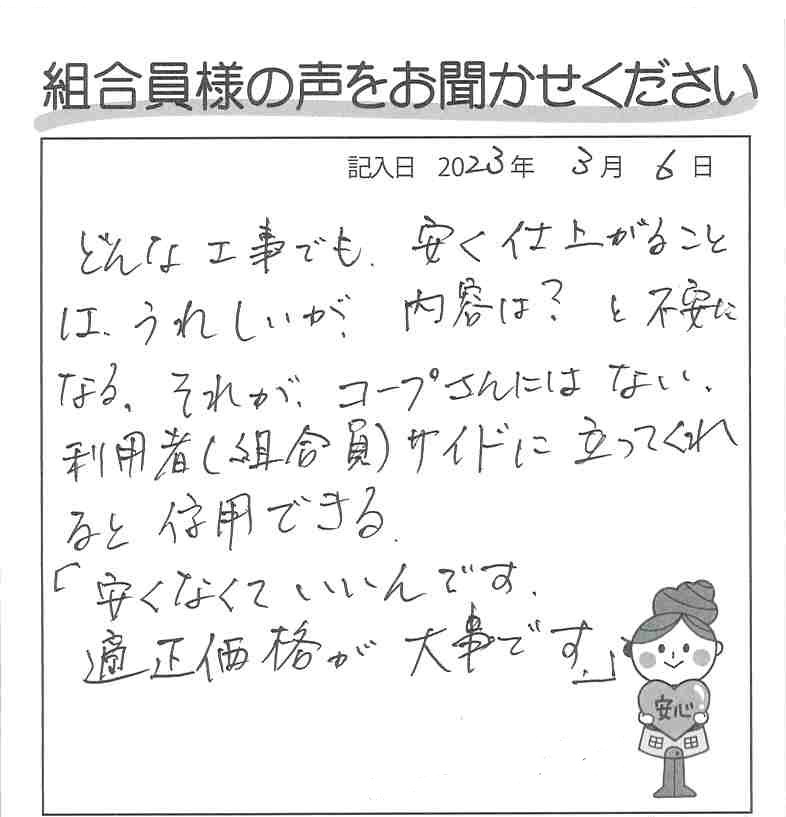 組合員様の声をお聞かせください
記入日 2023年 3月 6日
どんな工事でも、安く仕上がること
は、うれしいが、内容は？と不安に
なる。それが、コープさんにはない。
利用者(組合員)サイドに立ってくれ
ると信用できる。
「安くなくていいんです。
適正価格が大事です。」
安心